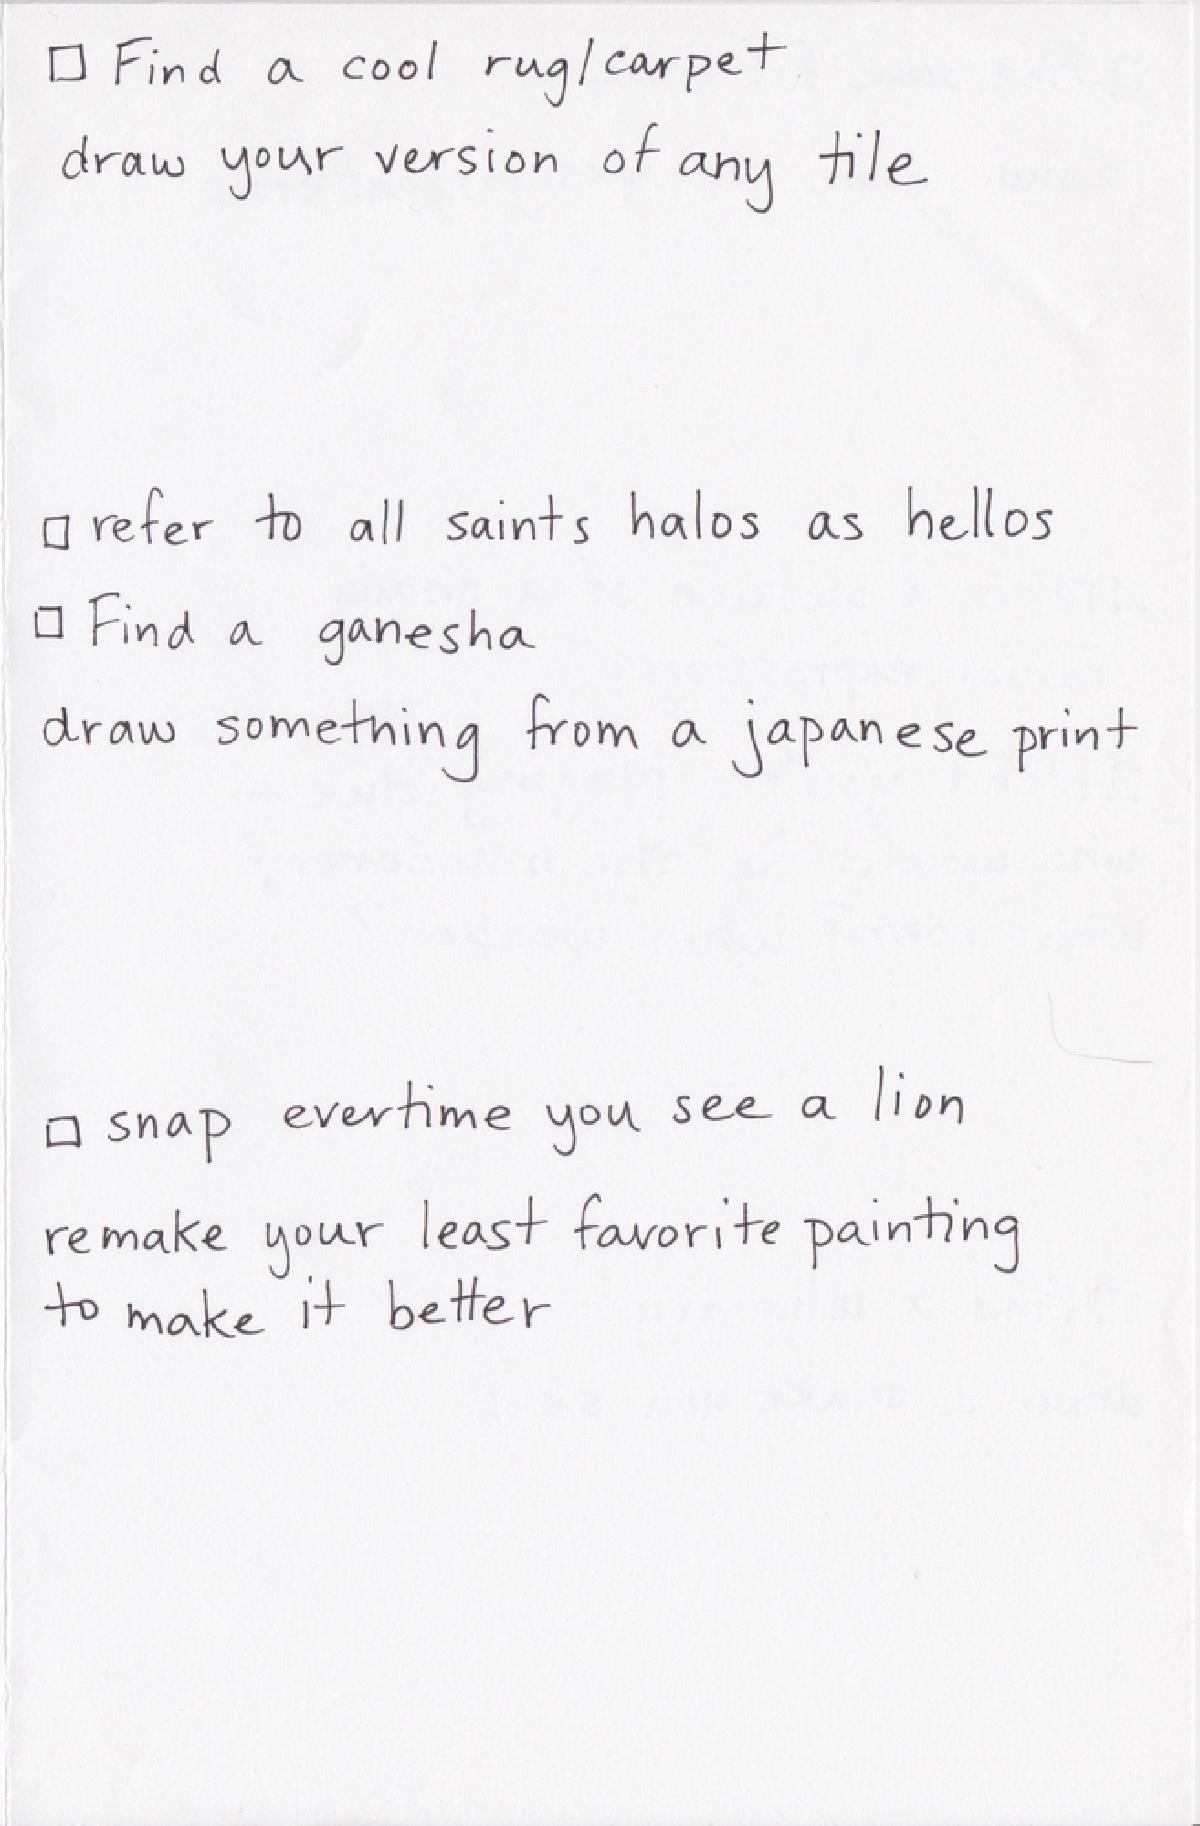 □ Find a cool rug/carpet
draw your version of any tile
□ refer to all saints halos as hellos
□ Find a ganesha
draw something from a japanese print
□ snap evertime you see a lion
remake your least favorite painting
to make it better